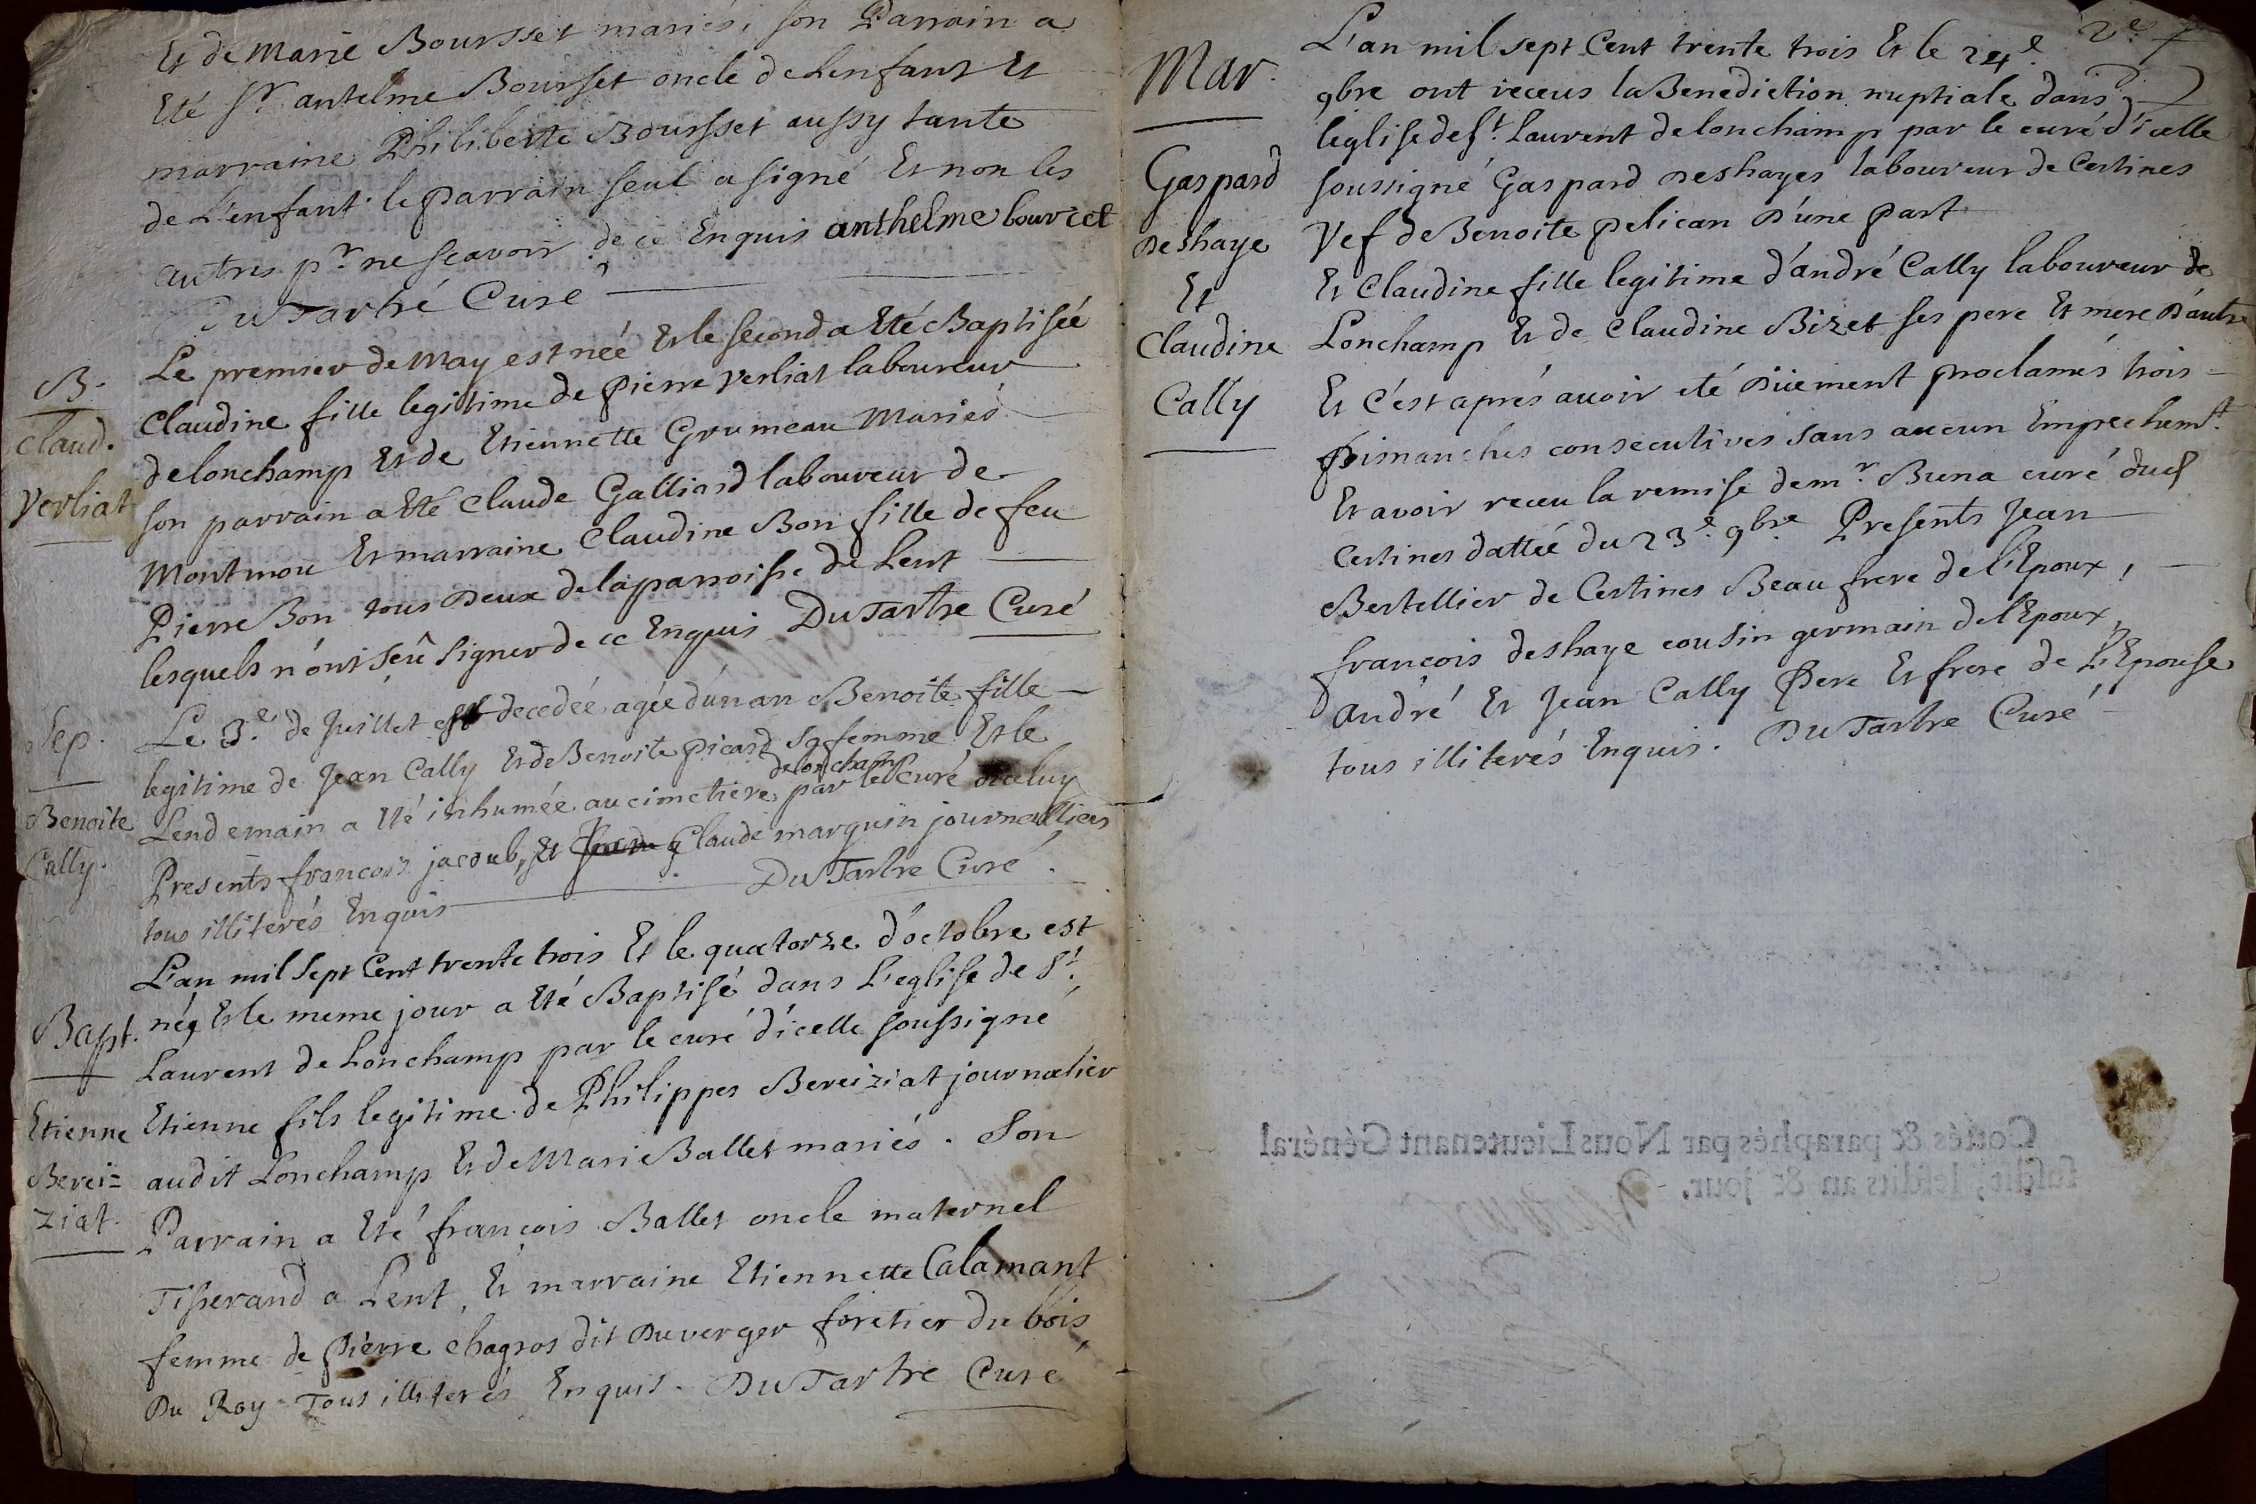 Et de Marie Boursset mariés, son Parrain a
Eté Sr. antelme Boursset oncle de Lenfant Et
marraine Philiberte Boursset aussy tante
de L'enfant. le parrain seul a signé Et non les
autres pr. ne scavoir de ce Enquis anthelme bourcet
DuTartre Curé
B.
Claud.
Verliat
Le premier de May est née Et le second a Eté Baptisée
Claudine fille legitime de pierre Verliat laboureur
de lonchamp Et de Etiennette Grumeau Mariés
son parrain a Eté Claude Galliard laboureur de
Montmou Et marraine Claudine Bon fille de feu
Pierre Bon tous Deux de la parroisse de Lent
lesquels n'ont seû signer de ce Enquis DuTartre Curé
Sep.
Benoite
Cally.
Le 3.e de Juillet est decedée agée d'un an Benoite fille
legitime de Jean Cally Et de Benoite picard sa femme Et le
Lendemain a Eté inhumée au cimetiere de lonchamp par le Curé dicelluy
Presents francois jacoub, Et Claude marquin journalliers
tous illiterés Enquis DuTartre Curé.
Bapt.
Etienne
Berei=
ziat.
L'an mil sept Cent trente trois Et le quatorze d'octobre est
né, Et le meme jour a Eté Baptisé dans L'eglise de St.
Laurent de Lonchamp par le curé d'icelle soussigné
Etienne fils legitime de Philippes Bereiziat journalier
audit Lonchamp Et de Marie Ballet mariés. Son
Parrain a Eté francois Ballet oncle maternel
Tisserand a Lent, Et marraine Etiennette Calamant
femme de pierre chagros dit Duverger forêtier du bois
Du Roy Tous illiterés Enquis. DuTartre Curé
2e
Mar.
Gaspard
Deshaye
Et
Claudine
Cally
L'an mil sept Cent trente trois Et le 24.e
9bre ont receus la Benediction nuptiale dans
leglise de St. Laurent de lonchamp par le curé d'icelle
soussigné Gaspard Deshayes laboureur de Certines
Vef de Benoite pelican D'une part
Et Claudine fille legitime d'andré Cally laboureur de
Lonchamp Et de Claudine Bizet ses pere Et mere D'autre
Et C'est aprés avoir eté Düement proclamés trois
Dimanches consecutives sans aucun Empechemt.
Et avoir receu la remise de mr. Buna curé dud
Certines dattée du 23.e 9bre. Presents Jean
Bertellier de Certines Beau frere de l'Epoux,
francois deshaye cousin germain de l'Epoux,
andré Et Jean Cally Pere Et frere de L'Epouse
tous illiterés Enquis. DuTartre Curé
Cottés & paraphés par Nous Lieutenant Général
susdit, lesdits an & jour.